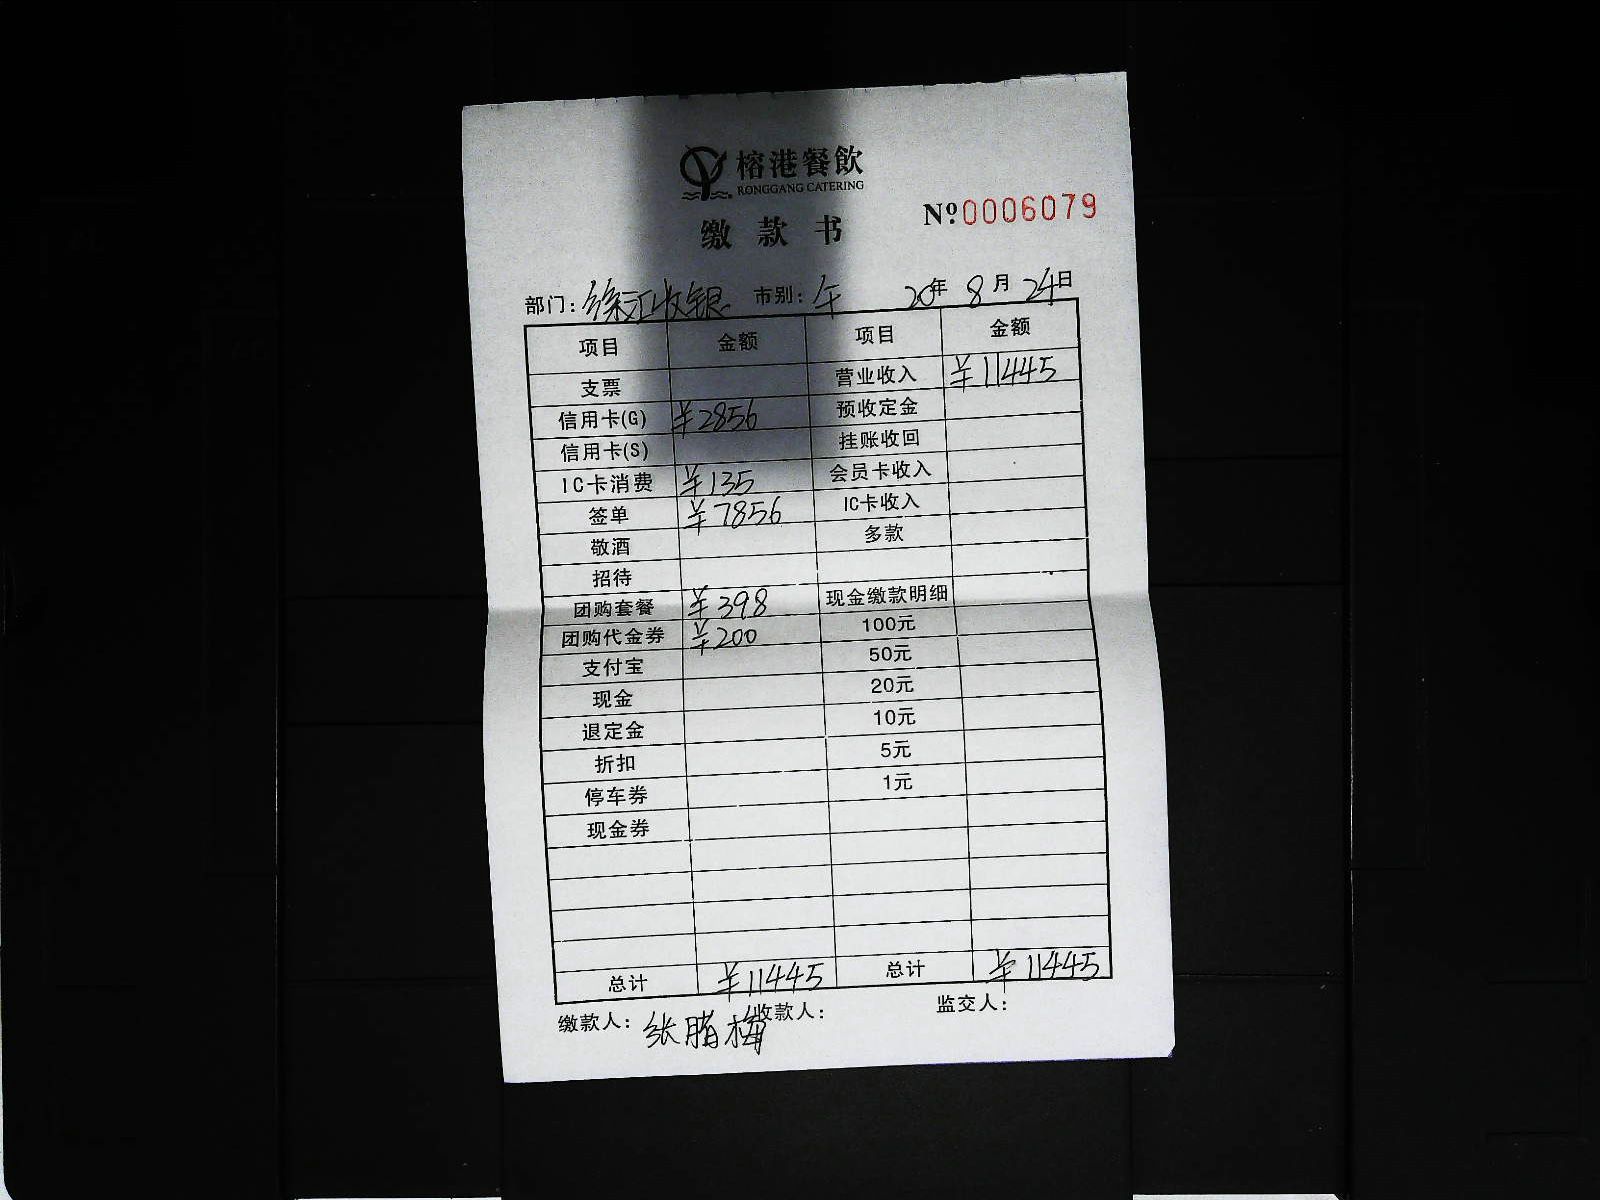 榕港餐飲
RONGGANG CATERING
缴款书
Nº 0006079
部门: 徐汇收银 市别: 午 20年 8月 24日
项目 金额 项目 金额
支票 营业收入 ¥11445
信用卡(G) ¥2856 预收定金
信用卡(S) 挂账收回
IC卡消费 ¥135 会员卡收入
签单 ¥7856 IC卡收入
敬酒 多款
招待
团购套餐 ¥398 现金缴款明细
团购代金券 ¥200 100元
支付宝 50元
现金 20元
退定金 10元
折扣 5元
停车券 1元
现金券
总计 ¥11445 总计 ¥11445
缴款人: 张腊梅 收款人: 监交人: